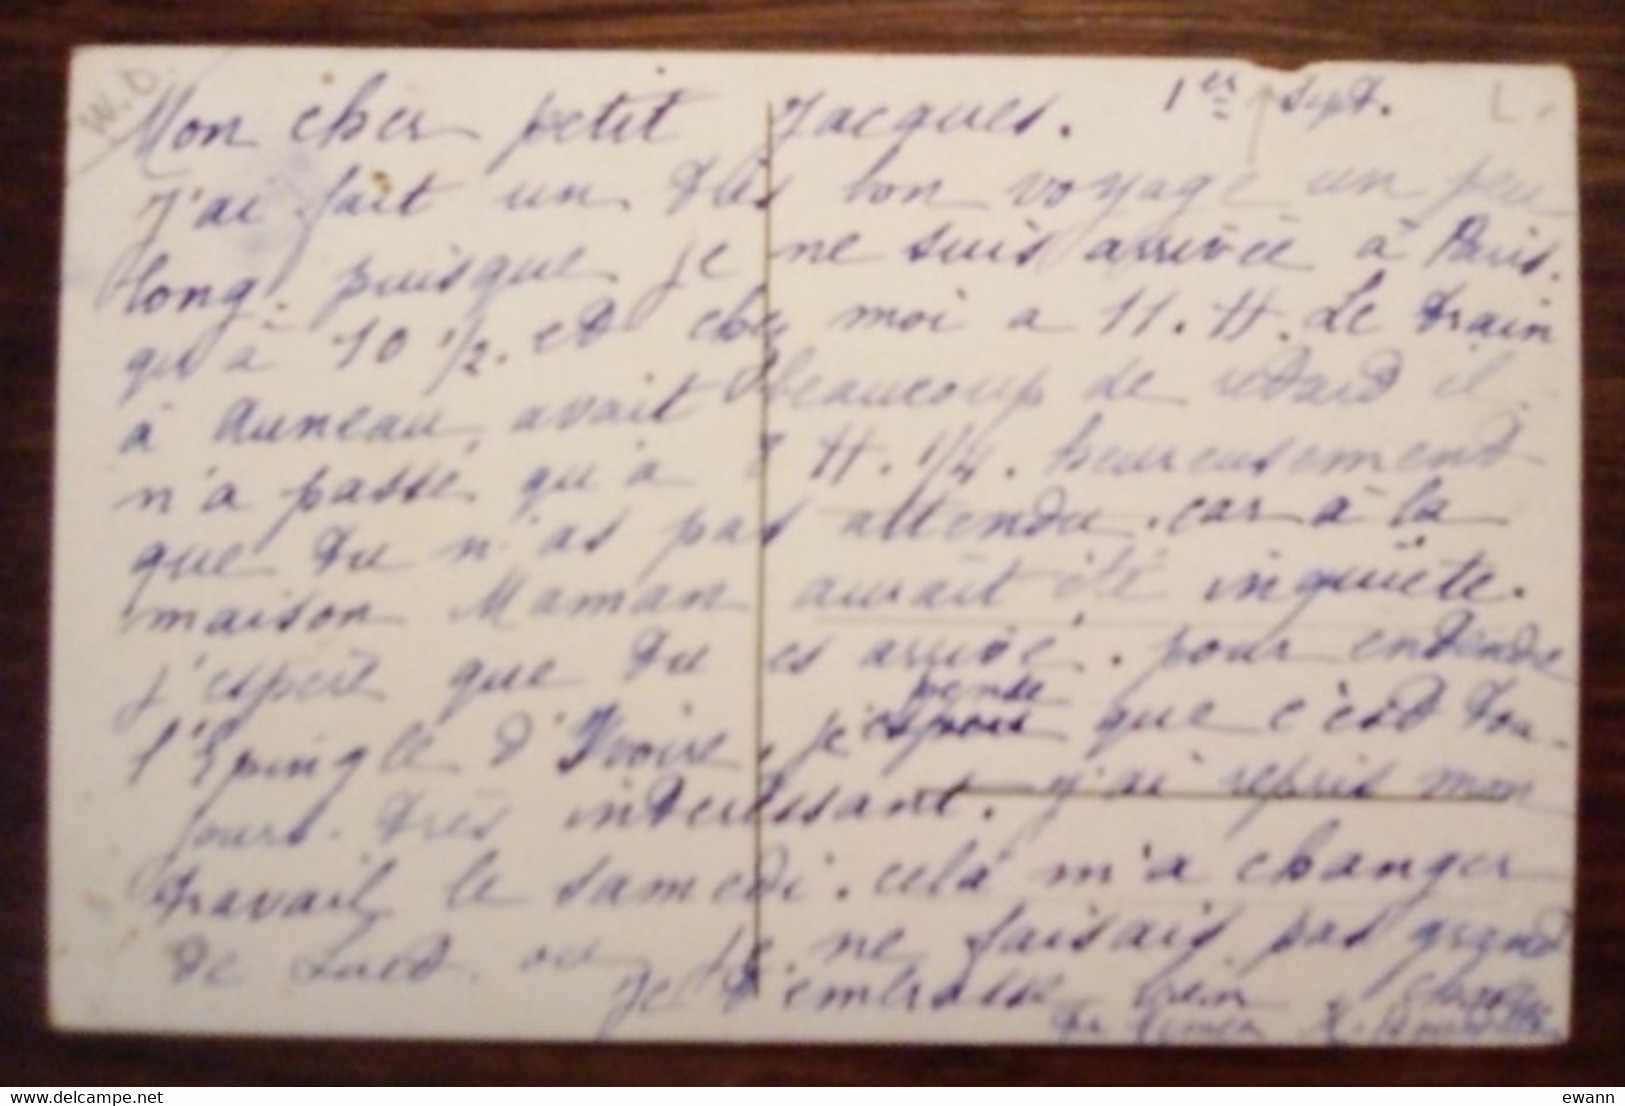 W.D. L.
1er Sept.
Mon cher petit Jacques.
J'ai fait un très bon voyage un peu
long. puisque je ne suis arrivée à Paris.
qu'à 10 1/2. et chez moi a 11. H. Le train
à Auneau, avait beaucoup de retard il
n'a passé qu'à 8 H. 1/4. heureusement
que tu n'as pas attendu. car à la
maison Maman aurait été inquiète.
j'espère que tu es arrivé. pour entendre
pense
l'Epingle d'Ivoire. je espoire que c'est tou-
jours. très interessant. j'ai repris mon
travail le samedi. celà m'a changer
de Luet. ou je ne faisais pas grand
chose
Je t'embrasse bien